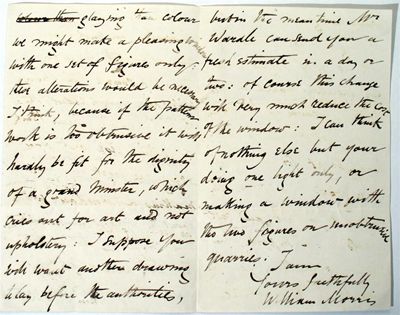 glazing the colour
we might make a pleasing window
with one set of figures only:
these alterations would be necessary
I think, because if the pattern
work is too obtrusive it would
hardly be fit for the dignity
of a grand Minster, which
cries out for art and not
upholstery: I suppose you
will want another drawing
to lay before the authorities,
but in the mean time Mr
Wardle can send you a
fresh estimate in a day or
two: of course this change
will very much reduce the cost
of the window: I can think
of nothing else but your
doing one light only, or
making a window with
the two figures on unobtrusive
quarries. I am
Yours faithfully
William Morris